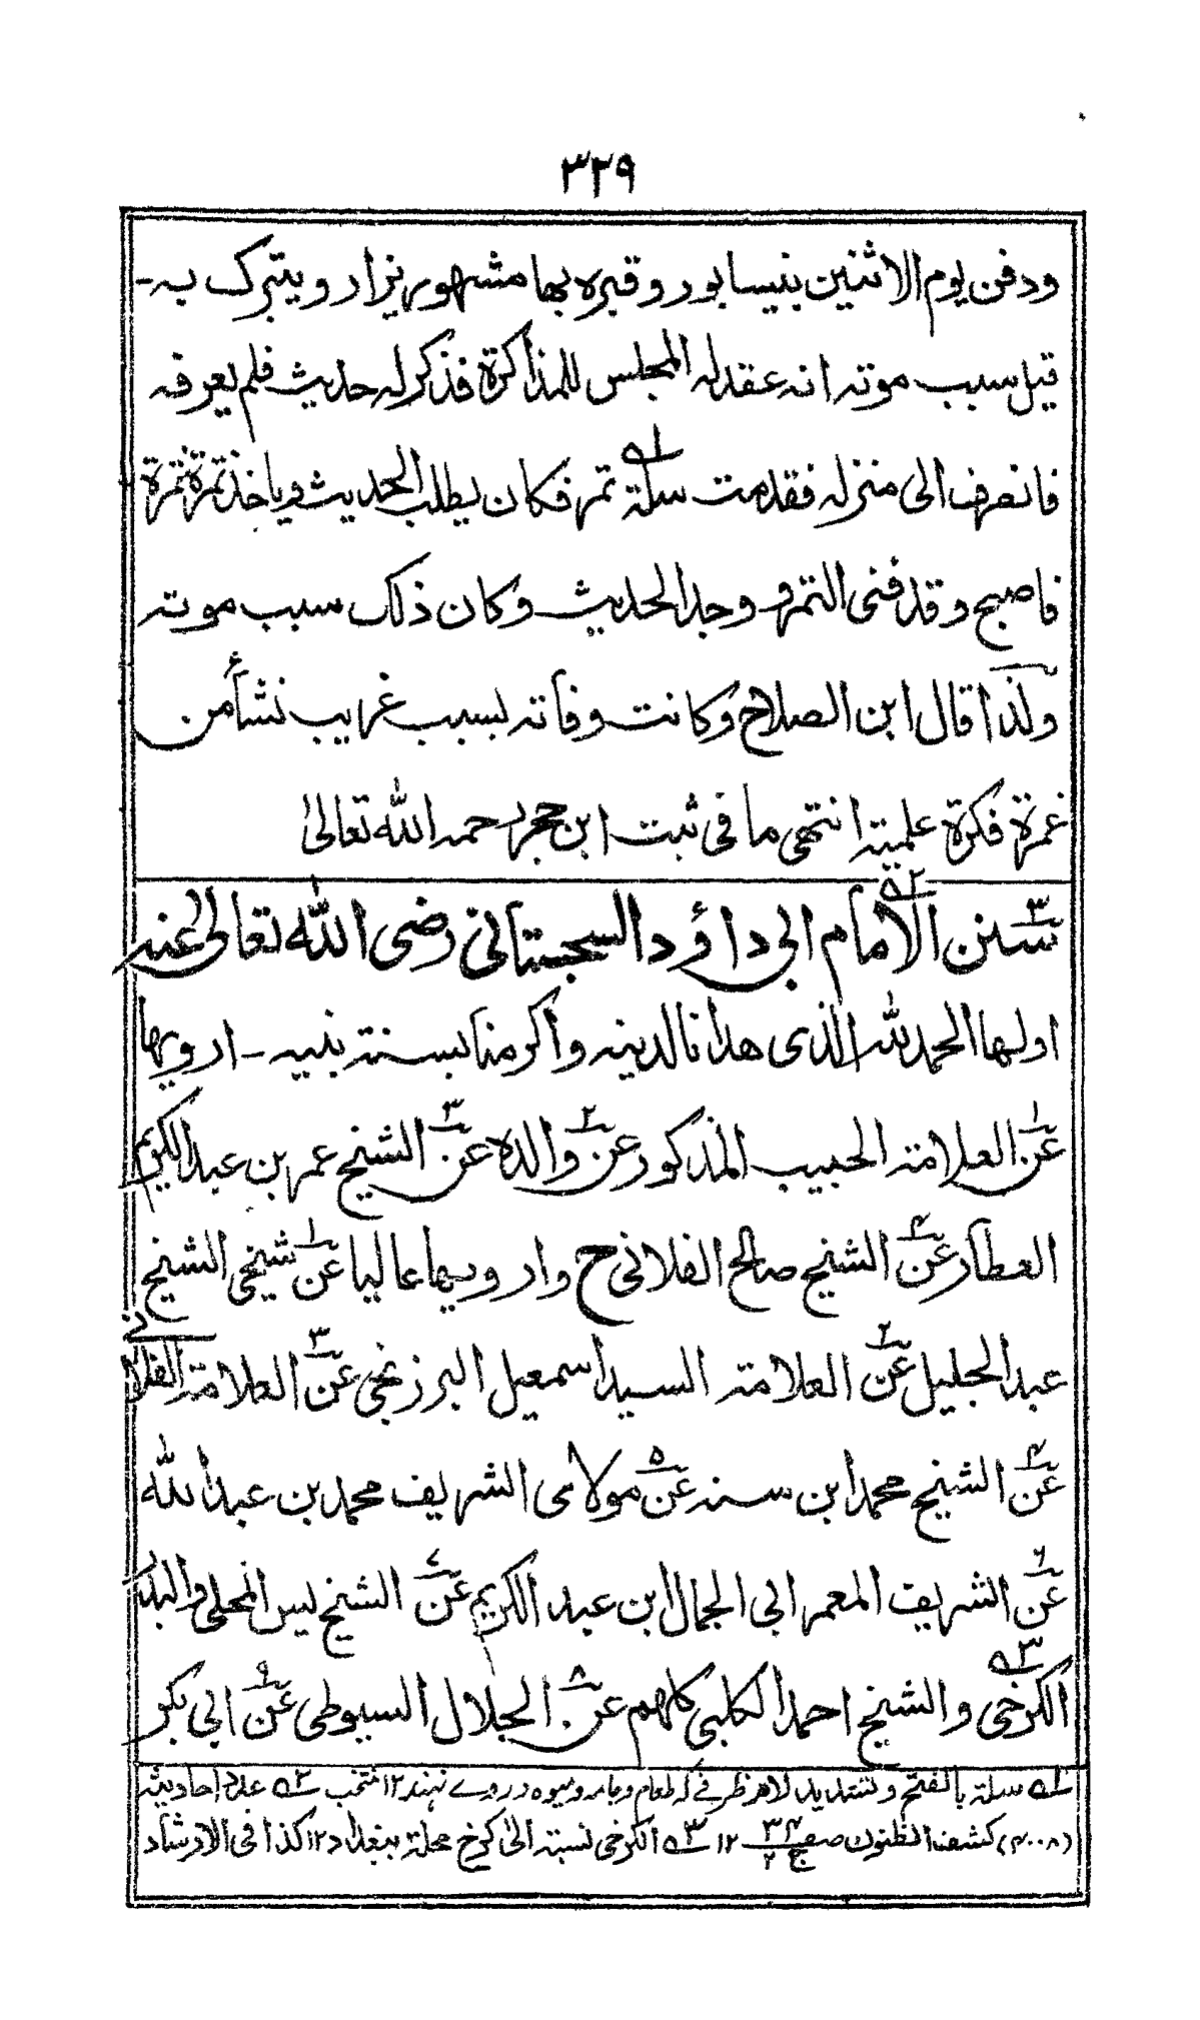 ٣٢٩
ودفن يوم الاثنين بنيسابور وقبره بها مشهور يزار ويتبرك به-
قيل سبب موته انه عقد له المجلس للمذاكرة فذكر له حديث فلم يعرفه
فانصرف الى منزله فقدمت سلة ١ه تمر فكان يطلب الحديث وياخذ تمرة تمرة
فاصبح وقد فنى التمر ووجد الحديث وكان ذلك سبب موته
ولذا قال ابن الصلاح وكانت وفاته بسبب غريب نشأ من
غمرة فكرة علمية انتهى ما فى ثبت ابن حجر رحمه الله تعالىٰ
٣ سنن الامام ٢ه ابى داؤد السجستانى رضى الله تعالىٰ عنه
اولها الحمد لله الذى هدانا لدينه وأكرمنا بسنة نبيه - ارويها
١ عن العلامة الحبيب المذكور ٢ عن والده ٣ عن الشيخ عمر بن عبد الكريم
العطار ٤ عن الشيخ صالح الفلانى ح وارويها عاليا ١ عن شيخى الشيخ
عبد الجليل ٢ عن العلامة السيد اسمعيل البرزنجى ٣ عن العلامة الفلانى
٤ عن الشيخ محمد ابن سنه ٥ عن مولاى الشريف محمد بن عبد الله
٦ عن الشريف المعمر ابى الجمال ابن عبد الكريم ٧ عن الشيخ يٰس المحلى والبدر
الكرخى ٣ه والشيخ احمد الكلبى كلهم ٨ عن الجلال السيوطى ٩ عن ابى بكر
١ه سلة بالفتح وتشديد لام ظرفے كہ طعام وجامہ وميوہ در روے نہند ١٢ منتخب ٢ه عدد احاديثه
(٤٠٠٨) كشف الظنون صفحه ٣٤ ج ٢ ١٢ ٣ه الكرخى نسبة الىٰ كرخ محلة ببغداد ١٢ كذا فى الارشاد